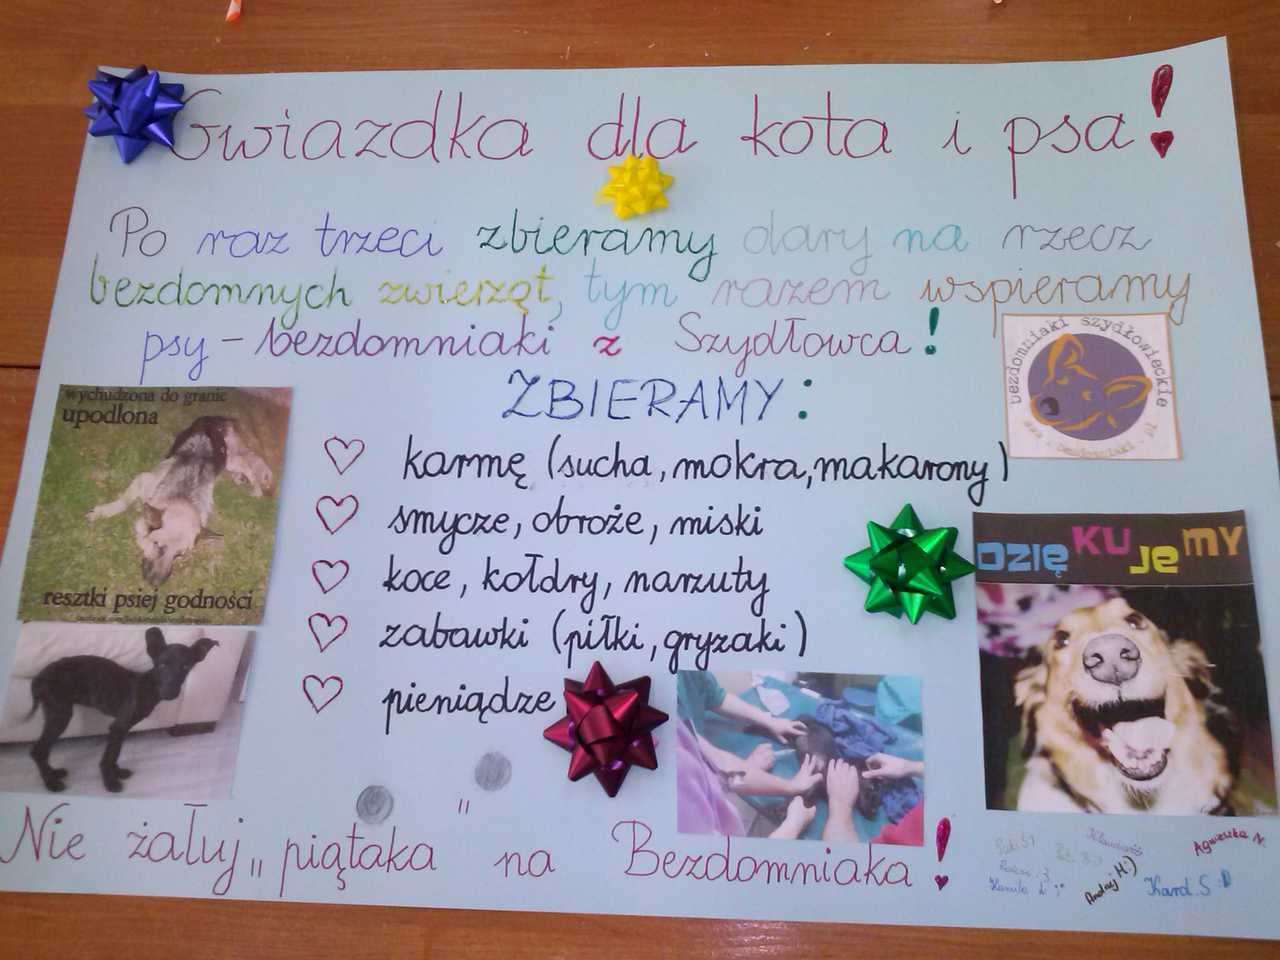 Gwiazdka dla kota i psa!
Po raz trzeci zbieramy dary na rzecz
bezdomnych zwierząt, tym razem wspieramy
psy - bezdomniaki z Szydłowca!
bezdomniaki szydłowieckie
ZBIERAMY:
wychudzona do granic
upodlona
resztki psiej godności
karmę (sucha, mokra, makarony)
smycze, obroże, miski
koce, kołdry, narzuty
zabawki (piłki, gryzaki)
pieniądze
DZIĘKUJEMY
Nie żałuj „piątaka" na Bezdomniaka!
Agnieszka N.
Karol. S :D